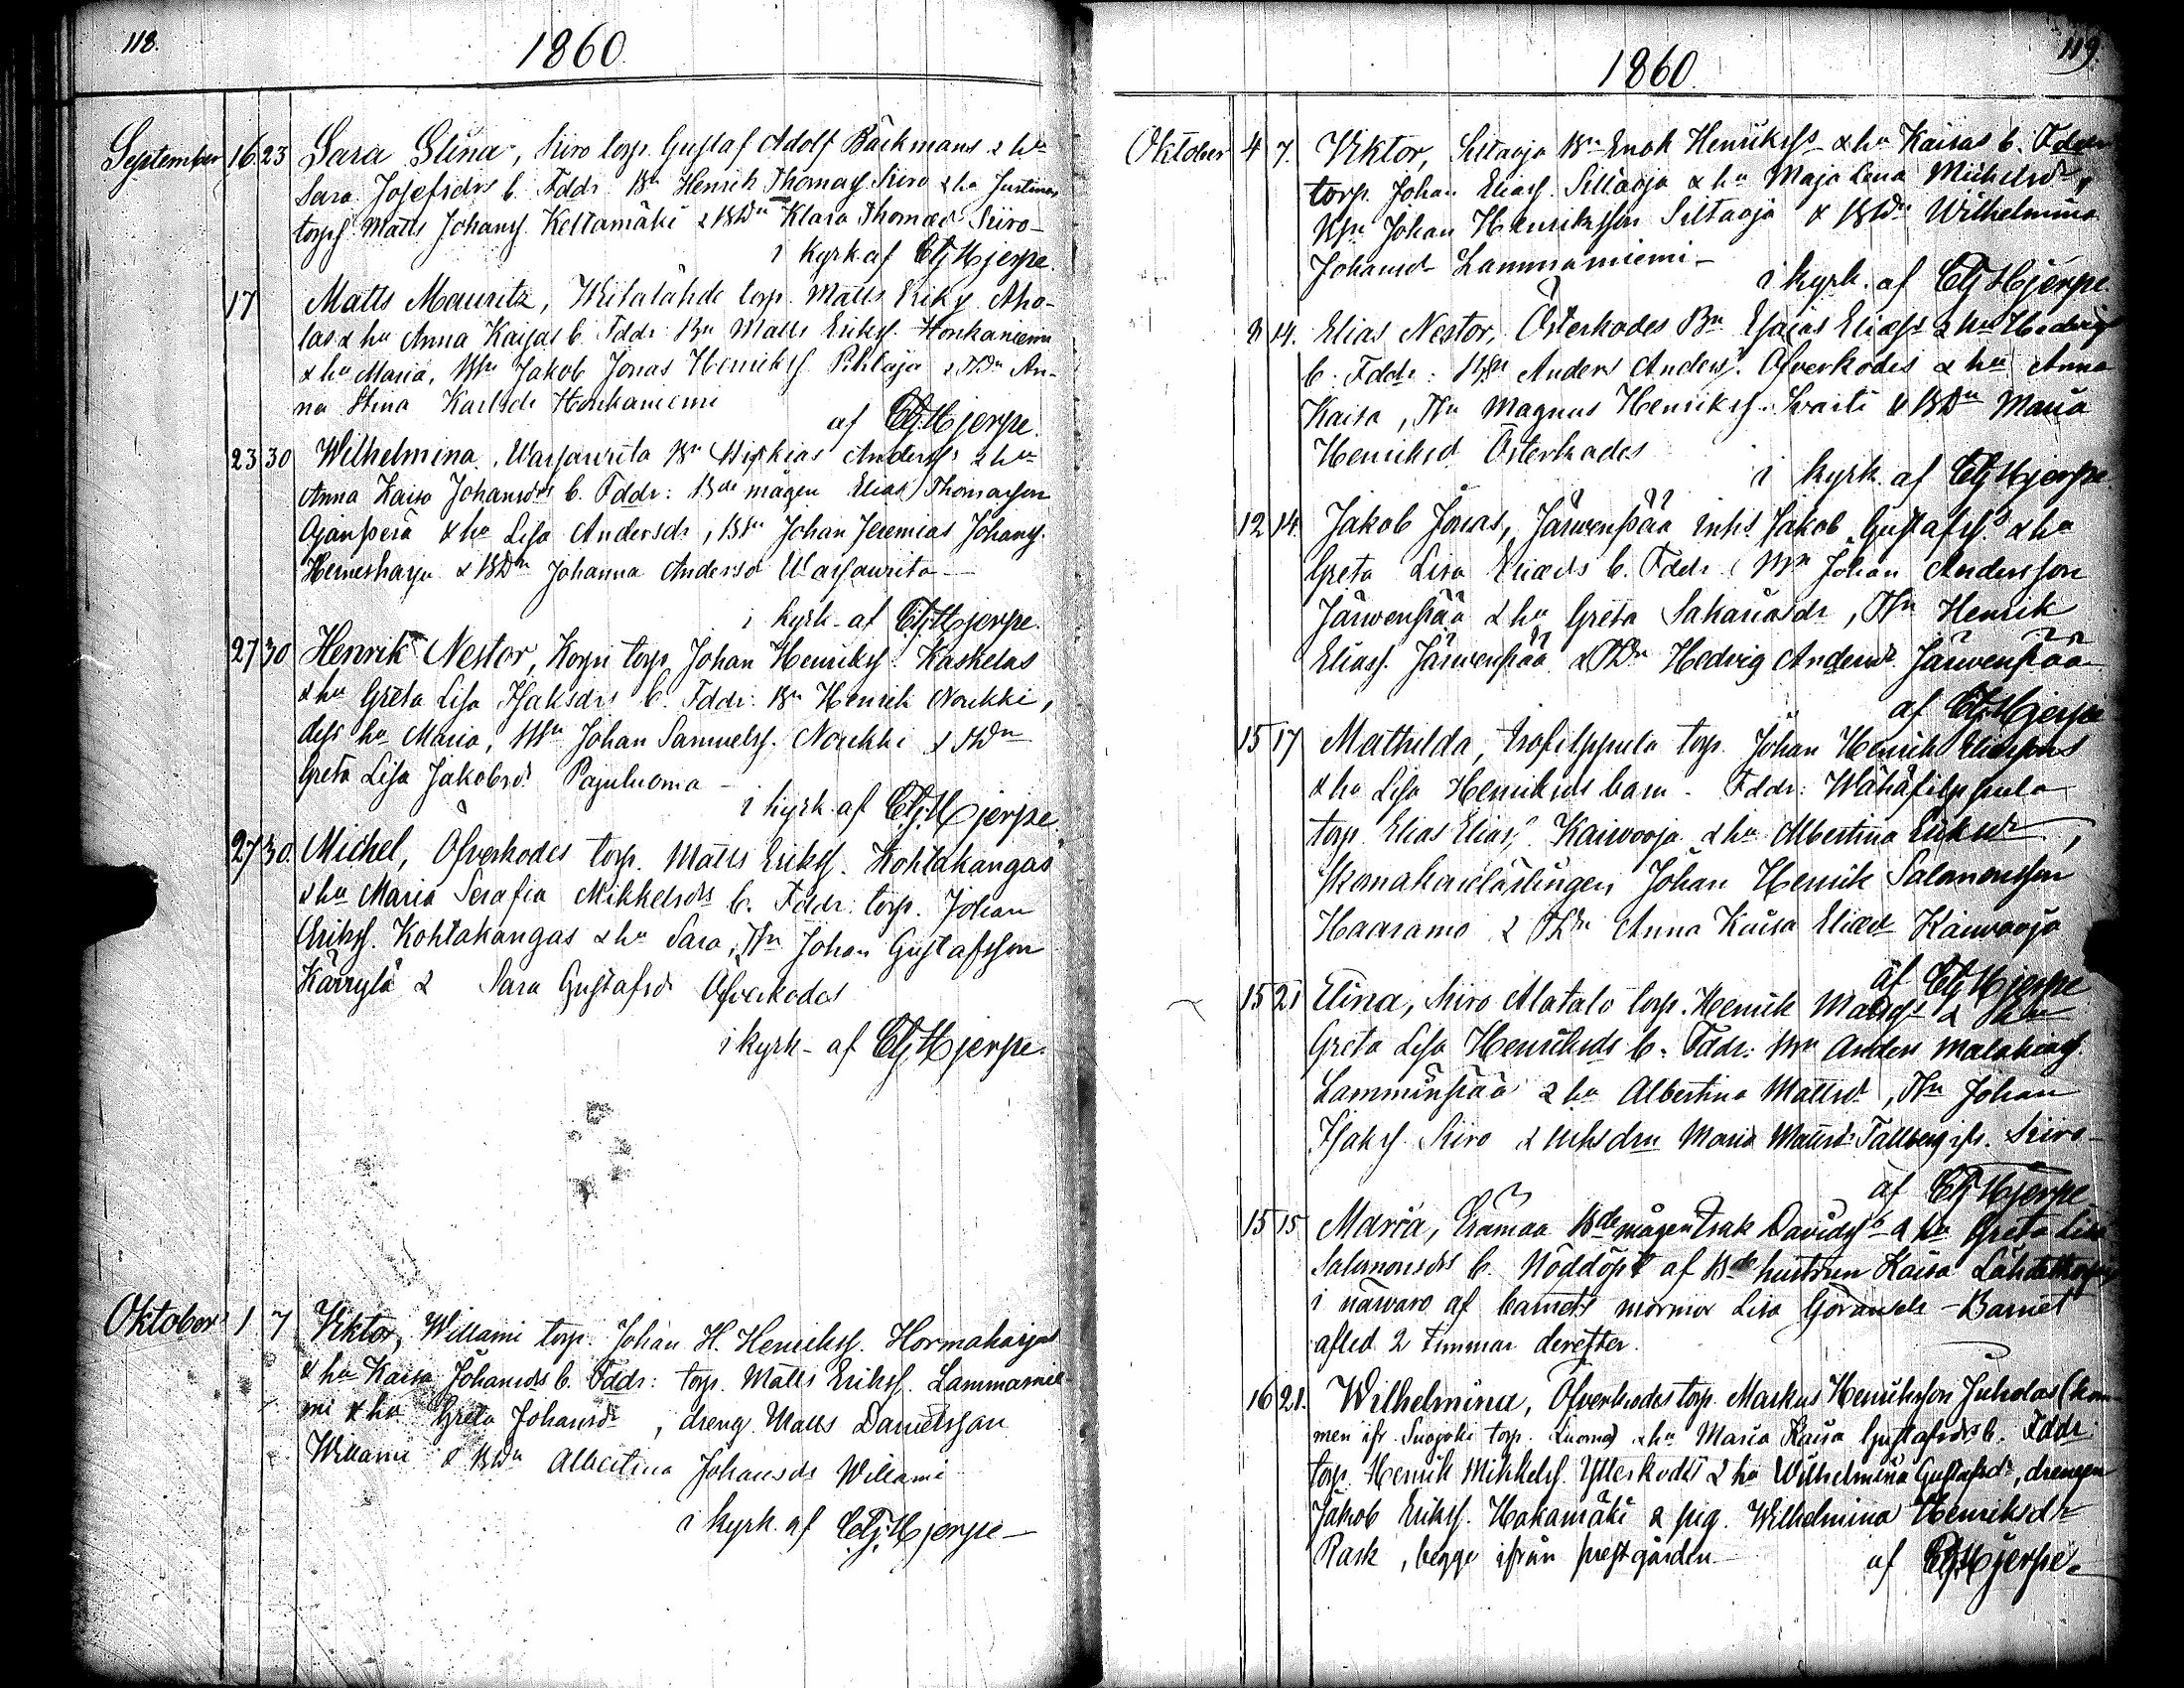 118.
1860.
September 16 23 Sara Stina, Siiro torp. Gustaf Adolf Bäckmans & hu
Sara Josefsdrs b. Fddr: Bn Henrik Thomass. Siiro & hu Justina,
torps. Matts Johanss. Keltamäki & BDn Klara Thomasd. Siiro-
i kyrk. af CGHjerpe.
17 Matts Mauritz, torp. Matts Eriks. Aho-
las & hu Anna Kaisas b. Fddr: Bn Matts Erikss. Honkaniemi
& hu Maria, Jakob Jonas Henrikss. Pihlaja & An-
na Stina Karlsdr Honkaniemi
af CGHjerpe.
23 30 Wilhelmina, Warsawirta Bn Anderss: & hu
Anna Kaisa Johansdrs b. Fddr: Bde mågen Elias Thomasson
Ojanperä & hu Lisa Andersdr, Johan Jeremias Johanss.
Herneskarju & BDn Johanna Andersd Warsawirta -
i kyrk. af CGHjerpe.
27 30 Henrik Nestor, Korpi torp. Johan Henrikss. Kaskelas
& hu Greta Lisa Isaksdrs b. Fddr: Bn Henrik Noukki,
dess hu Maria, Johan Samuelss. Noukki &
Greta Lisa Jakobsd. Pajuluoma -
i kyrk. af CGHjerpe.
27 30. Michel, Öfverkodes torp. Matts Erikss. Kohtakangas
& hu Maria Serafia Mikkelsdrs b. Fddr: torp. Johan
Erikss. Kohtakangas & hu Sara, Johan Gustafsson
Kärrylä & Sara Gustafsd. Öfverkodes
i kyrk. af CGHjerpe.
Oktober 1 7 Viktor, Willami torp. Johan H. Henrikss. Hormaharjus
& hu Kaisa Johansdrs b. Fddr: torp. Matts Erikss. Lammanie-
mi & hu Greta Johansdr, dreng. Matts Danielsson
Willami & BDn Albertina Johansdr Willami
i kyrk. af CGHjerpe -
119.
1860.
Oktober 4 7. Viktor, Siltaoja Bn Enok Henrikss & hu Kaisas b. Fddr:
torp. Johan Eliass. Siltaoja & hu Maja Lena Michelsdr,
Johan Henriksson Siltaoja & BDn Wilhelmina
Johansd Lammaniemi -
i kyrk. af CGHjerpe
8 14. Elias Nestor, Österkodes Bn Esaias Eliass & hu Hedvigs
b. Fddr: Anders Anderss. Öfverkodes & hu Anna
Kaisa, Magnus Henrikss. Svarti & BDn Maria
Henriksd Österkodes
i kyrk. af CGHjerpe
12 14. Jakob Jonas, Järwenpää inhs Jakob Gustafss. & hu
Greta Lisa Eliasds b. Fddr: Johan Andersson
Järwenpää & hu Greta Sakariasdr, Henrik
Eliass. Järwenpää & Hedvig Andersd. Järwenpää
af CGHjerpe
15 17 Mathilda, Isofilppula torp. Johan Henrik Eliassons
& hu Lisa Henriksds barn. Fddr: Wähäfilppula
torp. Elias Elias. Kaiwooja & hu Albertina Eriksdr,
skomakarlärlingen Johan Henrik Salomonsson
Haaramo & Anna Kaisa Eliasd Kaiwooja
af CGHjerpe
15 21 Elina, Siiro Alatalo torp. Henrik Matss & hu
Greta Lisa Henriksds b. Fddr: Anders Malakiass.
Lamminpää & hu Albertina Mattsd., Johan
Isakss. Siiro & Maria Mattsd. Tallberg ifr. Siiro -
af CGHjerpe
15 15 Maria, Erämaa Bde mågen Isak Davidss & hu Greta Lisa
Salomonsdrs b. Nöddöpt af Bde hustrun Kaisa
i närvaro af barnets mormor Lisa Göransdr - Barnet
afled 2 timmar derefter.
16 21. Wilhelmina, Öfverkodes torp. Markus Henriksson Juholas (kom-
men ifr. Suojoki torp. Luoma) & hu Maria Kaisa Gustafsdrs b. Fddr:
torp. Henrik Mikkelss. Ytterkodes & hu Wilhelmina Gustafsdr, drengen
Jakob Erikss. Hakamäki & pig. Wilhelmina Henriksdr
Rask, begge ifrån prestgården
af CGHjerpe.